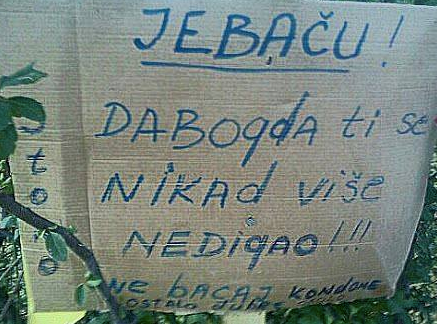 JEBAČU!
DABOgdA ti se
NiKAd više
NEDigao!!!
NE BACAJ KONDOME
OSTALO